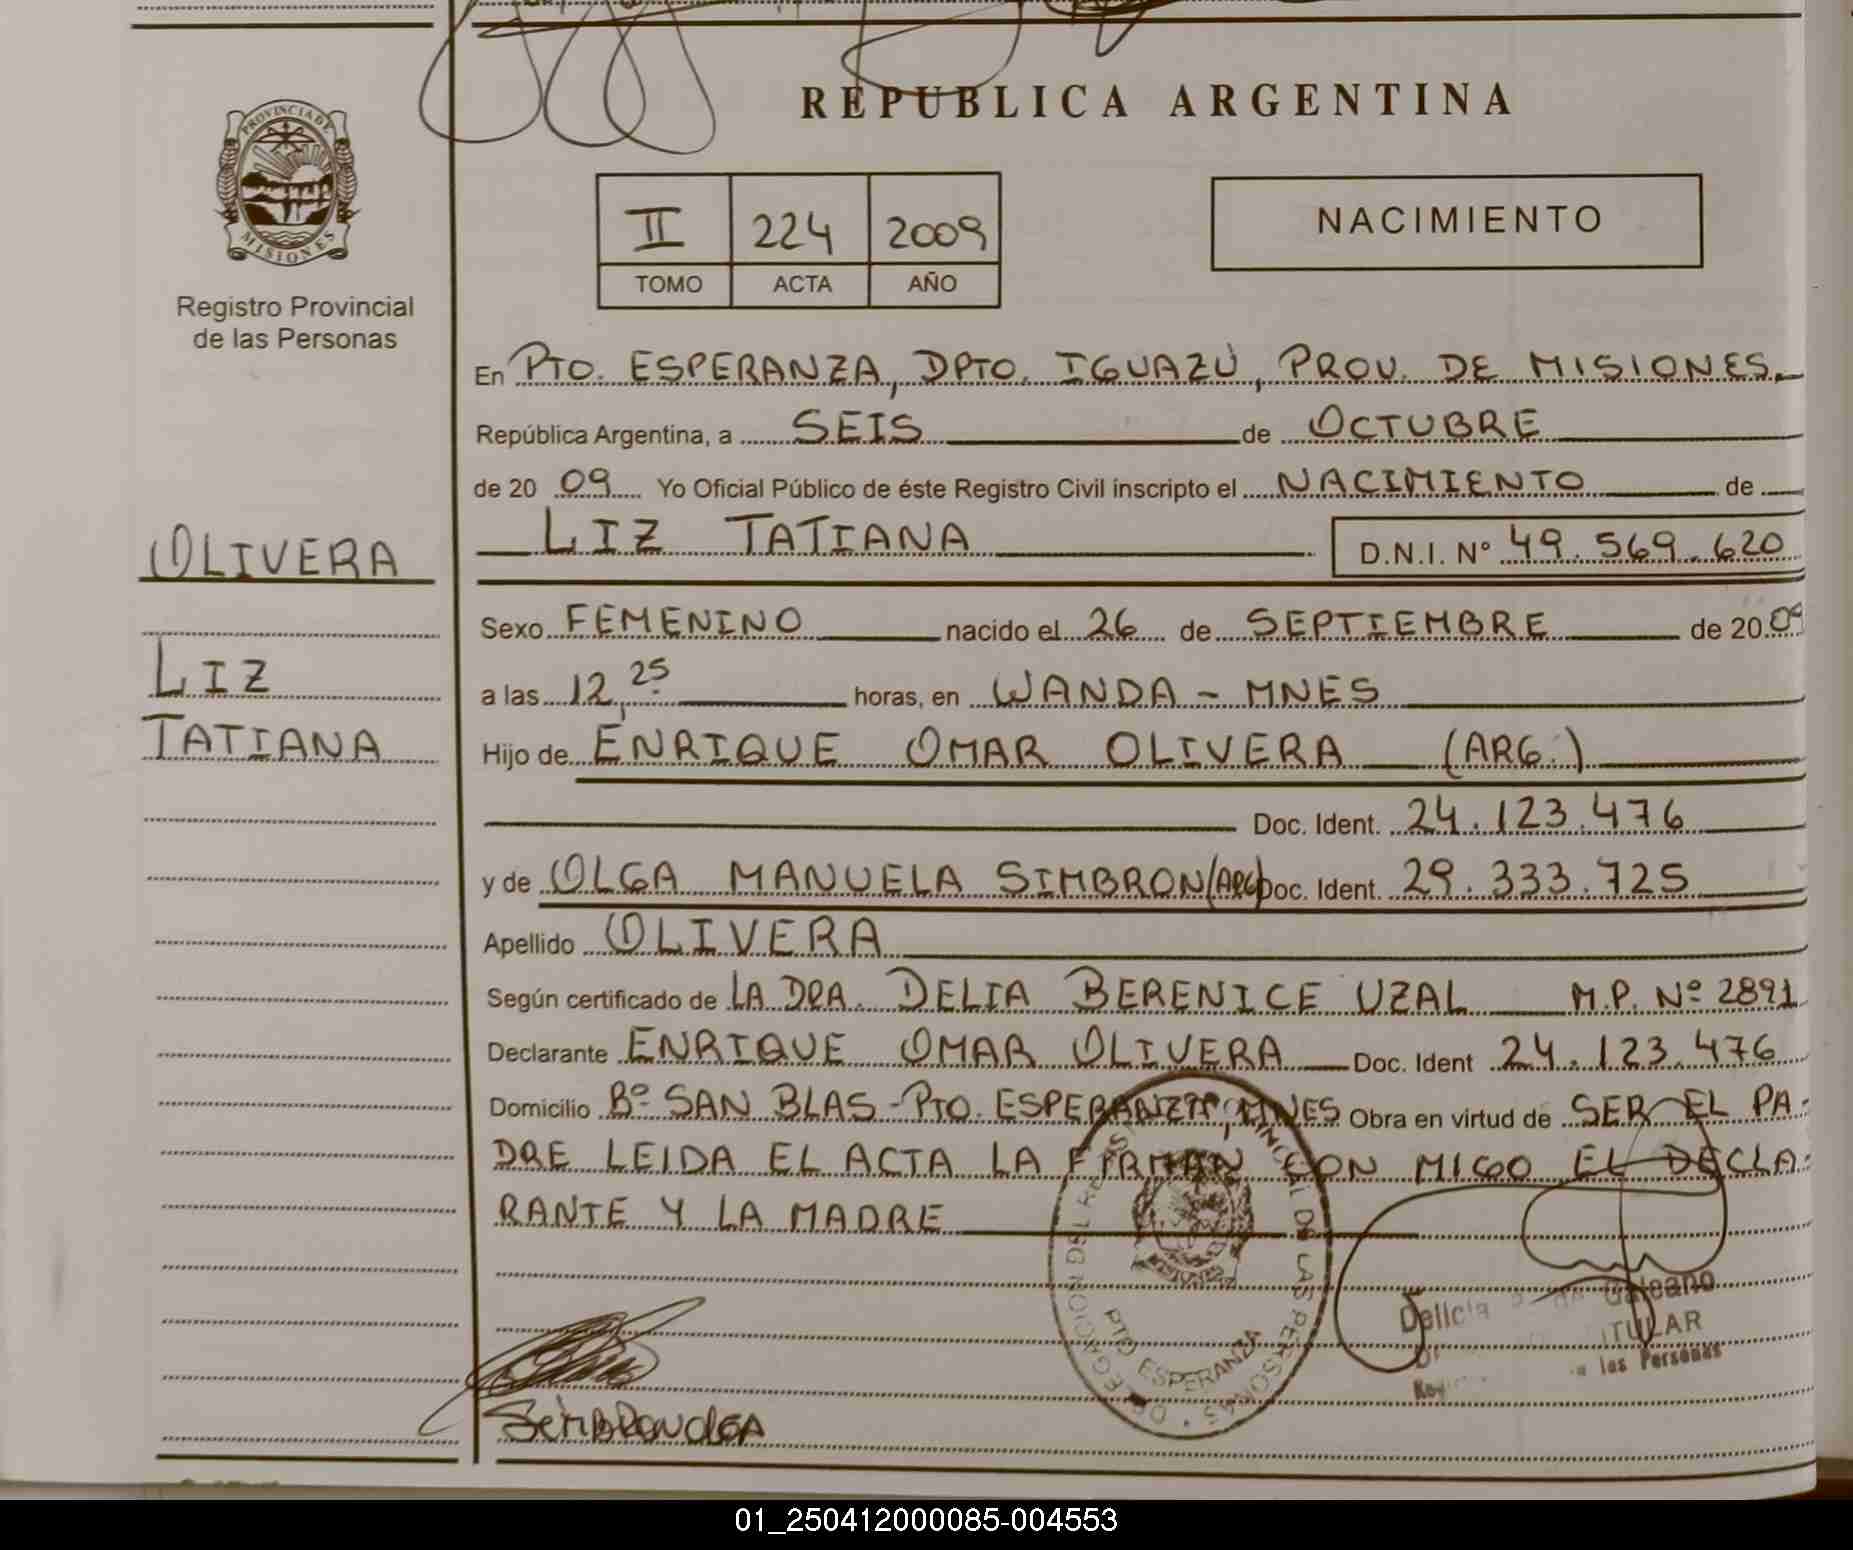 REPUBLICA ARGENTINA
PROVINCIA DE
MISIONES
Registro Provincial
de las Personas
II 224 2009
TOMO ACTA AÑO
NACIMIENTO
En PTO. ESPERANZA, DPTO. IGUAZÚ, PROV. DE MISIONES.
República Argentina, a SEIS de OCTUBRE
de 20 09 Yo Oficial Público de éste Registro Civil inscripto el NACIMIENTO de
LIZ TATIANA D.N.I. N° 49.569.620
OLIVERA
LIZ
TATIANA
Sexo FEMENINO nacido el 26 de SEPTIEMBRE de 20 09
a las 12,25 horas, en WANDA - MNES
Hijo de ENRIQUE OMAR OLIVERA (ARG.)
Doc. Ident. 24.123.476
y de OLGA MANUELA SIMBRON (ARG) Doc. Ident. 29.333.725
Apellido OLIVERA
Según certificado de LA DRA. DELIA BERENICE UZAL M.P. Nº 2891
Declarante ENRIQUE OMAR OLIVERA Doc. Ident 24.123.476
Domicilio Bº SAN BLAS - PTO. ESPERANZA, MNES Obra en virtud de SER EL PA-
DRE LEIDA EL ACTA LA FIRMAN CON MIGO EL DECLA-
RANTE Y LA MADRE
DE LAS PERSONAS
PTO ESPERANZA
Delicia Galeano
TITULAR
las Personas
SimBRON OLGA
01_250412000085-004553